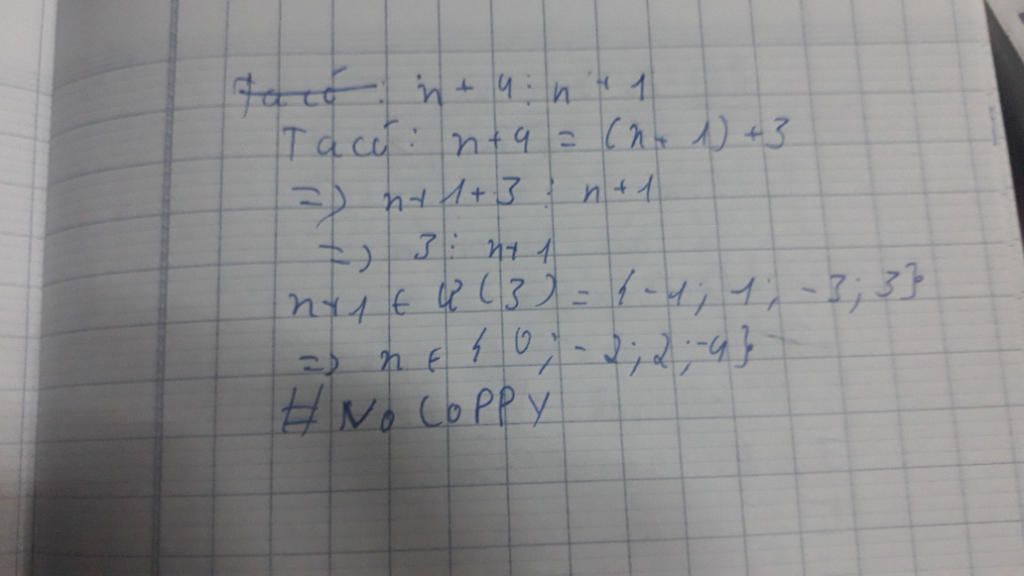 Ta có : n + 4 ⋮ n + 1
Ta có : n + 4 = (n + 1) + 3
=> n + 1 + 3 ⋮ n + 1
=> 3 ⋮ n + 1
n + 1 ∈ Ư(3) = {-1; 1; -3; 3}
=> n ∈ {0; -2; 2; -4}
# NO COPPY